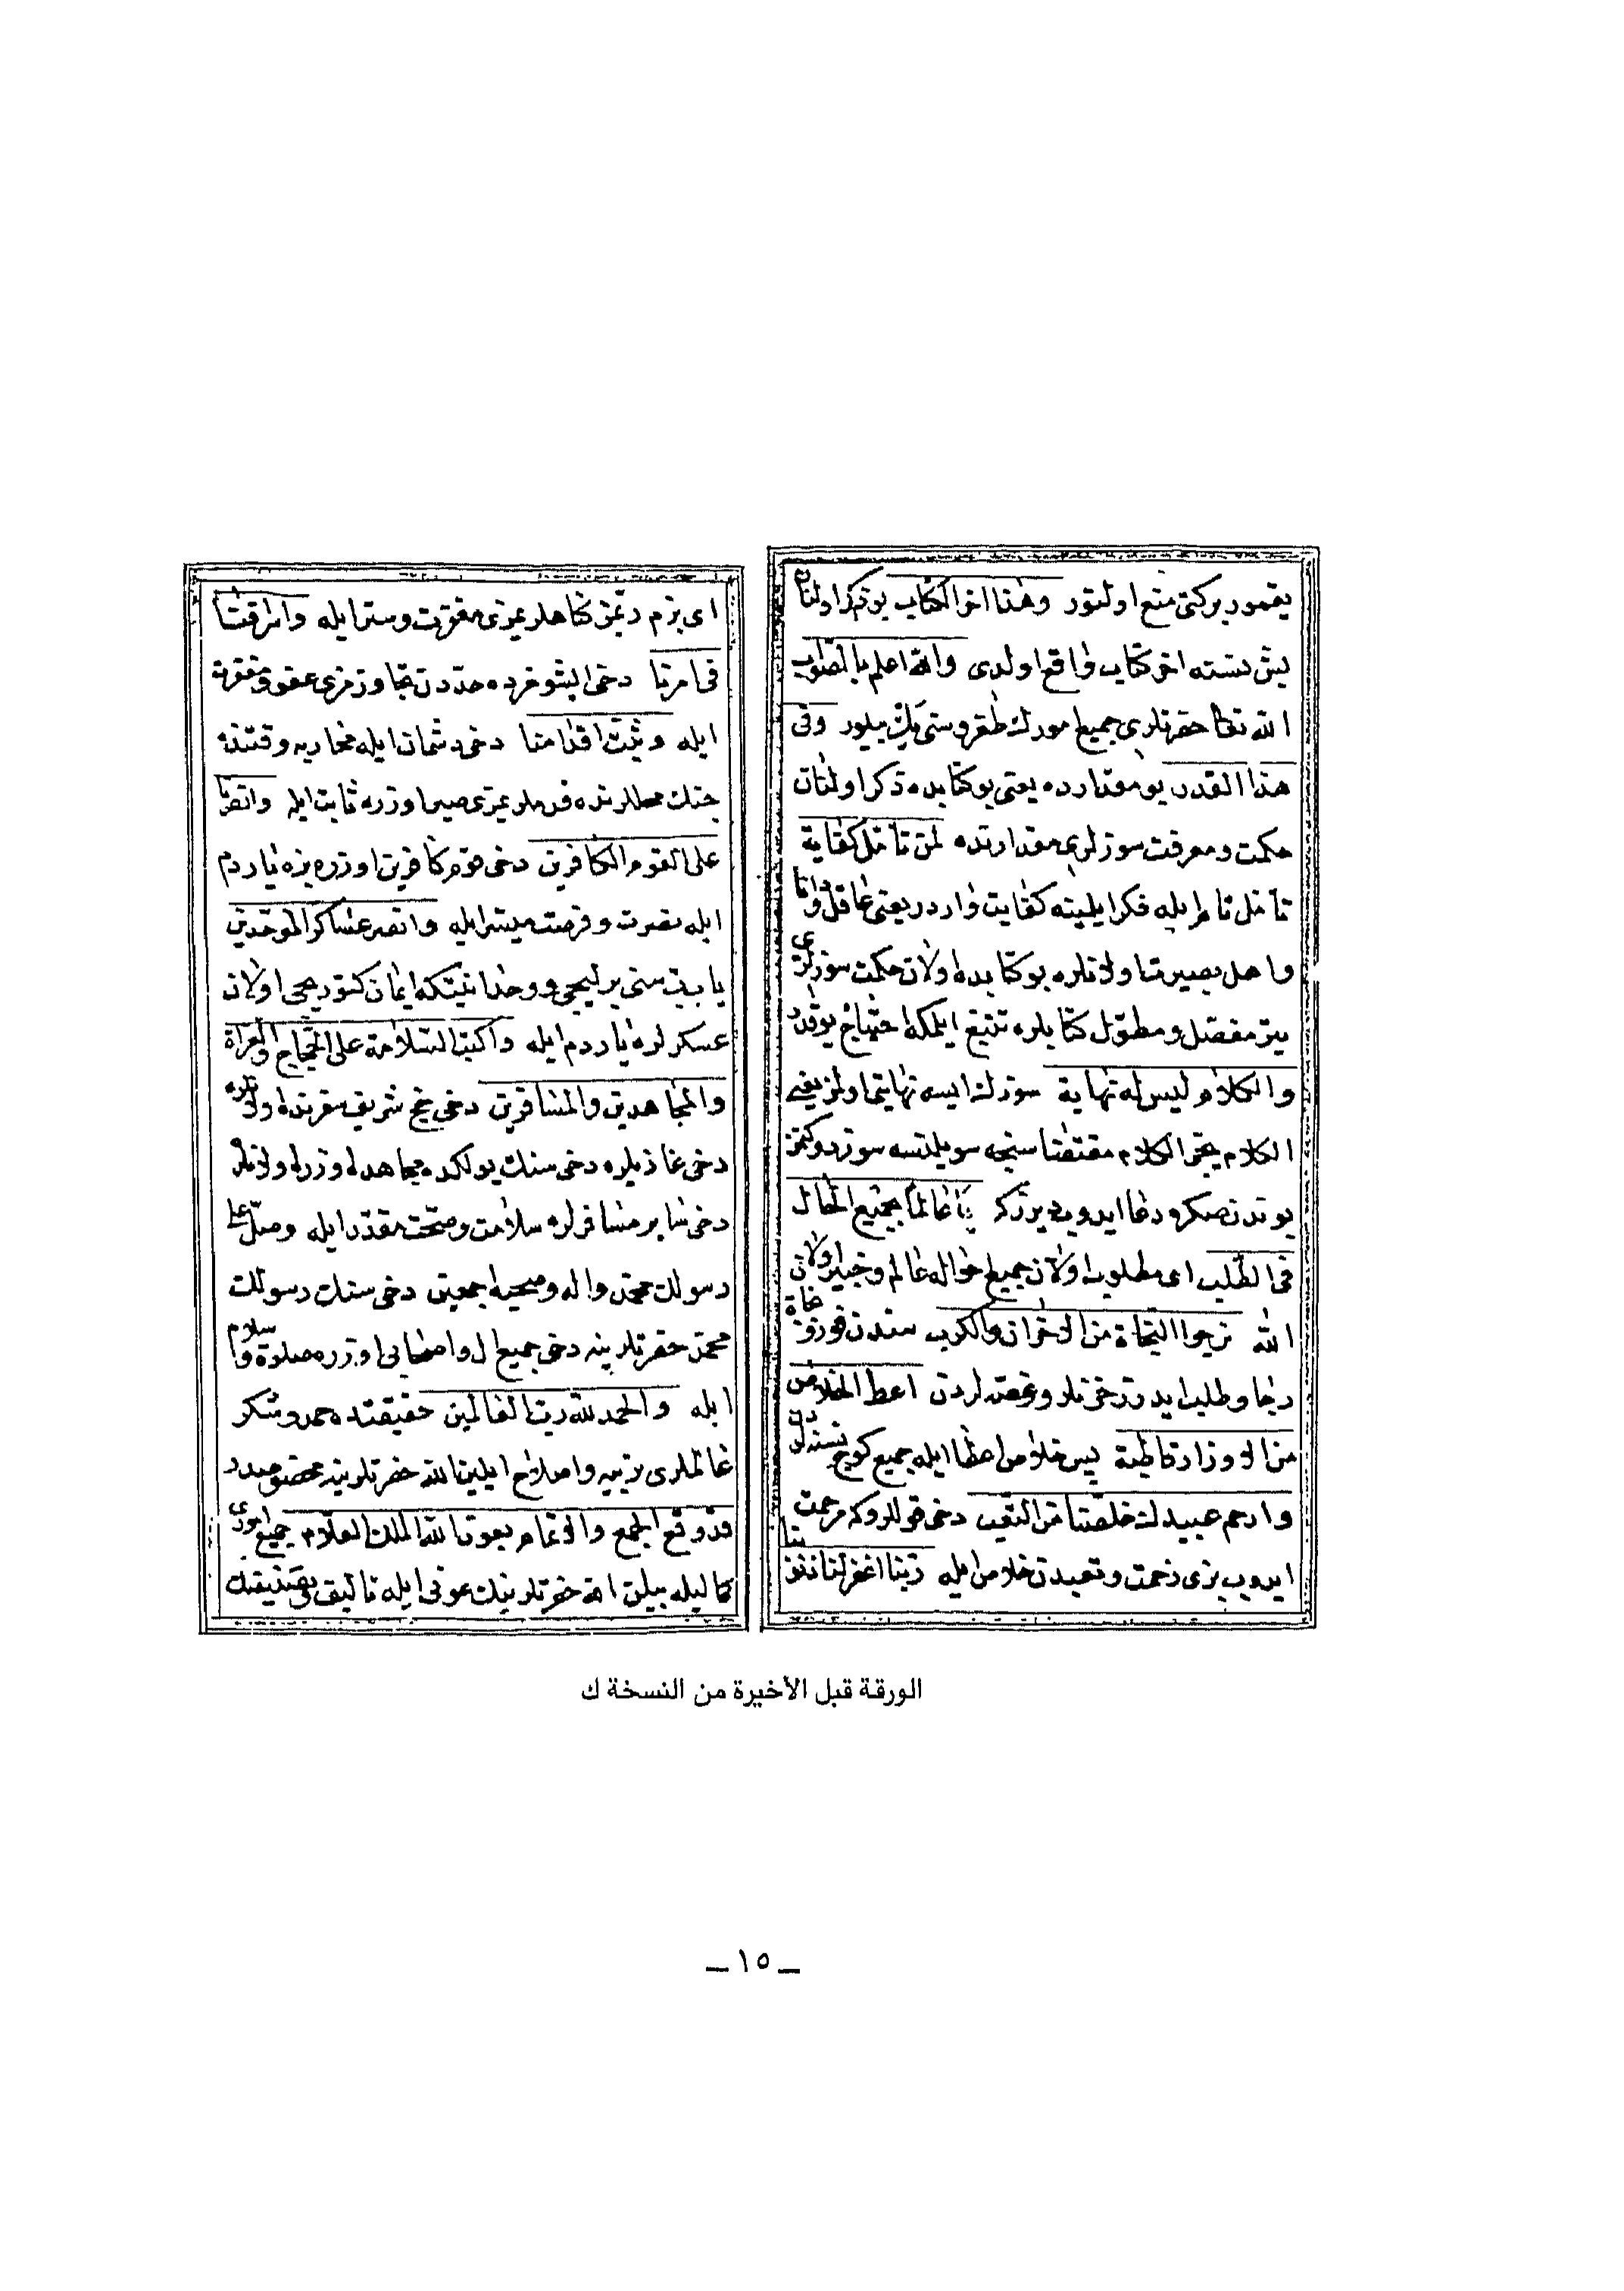 يغمورد بركتى منع اولنور وهذا اخر الكتاب بو ذكر اولنان
بش نسنه اخر كتاب واقع اولدى والله اعلم بالصواب
الله تعالى حضرتلرى جميع امورك طغروسنى يك بيلور وفى
هذا القدر بو مقدارده يعنى بو كتابده ذكر اولنان
حكمت ومعرفت سوزلرى مقدارنده لمن تأمل كفاية
تأمل تام ايله فكر ايليينه كفايت واردر يعنى عاقل ودانا
واهل بصيرت اولانلره بو كتابده اولان حكمت سوزلرى
يتر مفصل ومطول كتابلره تتبع ايلمكه احتياج يوقدر
والكلام ليس له نهاية سوزك ايسه نهايتى اولمز يعنى
الكلام يجر الكلام مقتضاسنجه سويلنسه سوز دوكنمز
بوندن صكره دعا ايدوب ديرزكه يا عالما بجميع الحال
فى الطلب اى مطلوب اولان جميع احواله عالم وخبير اولان
الله نرجوا النجاة من الاحزان والكرب سندن قورتولمغى
رجا وطلب ايدرز حزنلر وغصه لردن اعط الخلاص
من الاوزار قاطبة پس خلاص اعطا ايله جميع كوج نسنه لردن
وارحم عبيدك خلصنا من التعب دخى قوللروكه مرحمت
ايدوب بزى زحمت وتعبدن خلاص ايله ربنا اغفر لنا ذنوبنا
اى بزم ربمز كناهلريمزى مغفرت وستر ايله واسرافنا
فى امرنا دخى ايشومزده حددن تجاوزمزى عفو ومغفرت
ايله وثبت اقدامنا دخى دشمان ايله محاربه وقتنده
جنك محللرنده قدملريمزى صبر اوزره ثابت ايله وانصرنا
على القوم الكافرين دخى قوم كافرين اوزره بزه ياردم
ايله نصرت وفرصت ميسر ايله وانصر عساكر الموحدين
يا رب سنى برليجى ووحدانيتكه ايمان كتوريجى اولان
عسكرلره ياردم ايله واكتب السلامة على الحجاج والغزاة
والمجاهدين والمسافرين دخى حج شريف سفرنده اولانلره
دخى غازيلره دخى سنك يولكده مجاهده اوزره اولانلره
دخى سائر مسافرلره سلامت وصحت مقدر ايله وصل على
رسولك محمد واله وصحبه اجمعين دخى سنك رسولك
محمد حضرتلرينه دخى جميع ال واصحابى اوزره صلوة وسلام
ايله والحمد لله رب العالمين حقيقتده حمد وشكر
عالملرى تربيه واصلاح ايلين الله حضرتلرينه مخصوصدر
قد وقع الجمع والاتمام بعون الله الملك العلام جميع امورى
كماليله بيلن الله حضرتلرينك عونى ايله تأليف وتصنيفك
الورقة قبل الأخيرة من النسخة ك
ــ ١٥ ــ